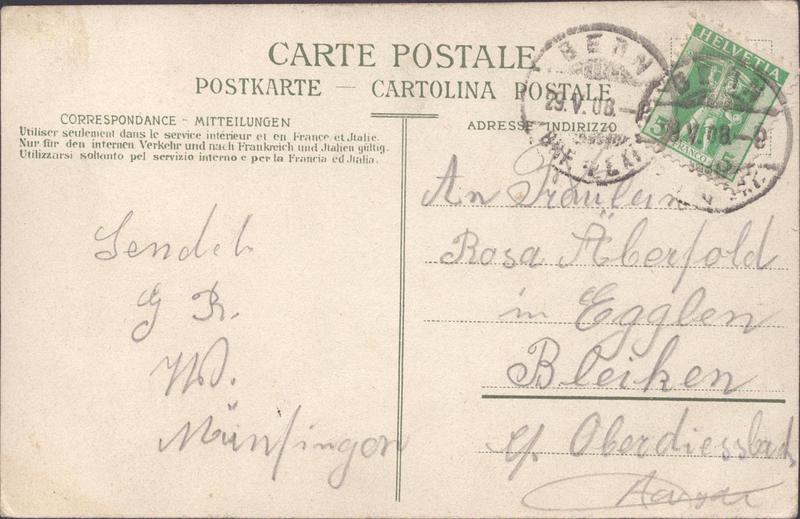 CARTE POSTALE
POSTKARTE — CARTOLINA POSTALE
CORRESPONDANCE - MITTEILUNGEN
Utiliser seulement dans le service intérieur et en France et Italie.
Nur für den internen Verkehr und nach Frankreich und Italien gültig.
Utilizzarsi soltanto pel servizio interno e per la Francia ed Italia.
ADRESSE INDIRIZZO
HELVETIA
5 5
FRANCO
BERN
29.V.08.
BERN
V.08-9
An Fräulein
Rosa Äberfold
in Egglen
Bleiken
Oberdiessbach
Sendet
G R.
W.
Münsingen